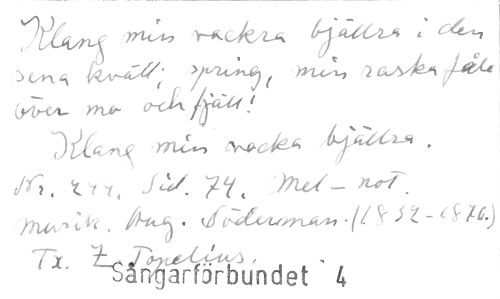 Klang min vackra bjällra i den
sena kväll; spring, min raska fåle
över mo och fjäll!
Klang min vacka bjällra.
Nr. 244. Sid. 74. Mel-not.
musik. Aug. Söderman. (1832-1876.)
Tx. Z Topelius.
Sångarförbundet 4